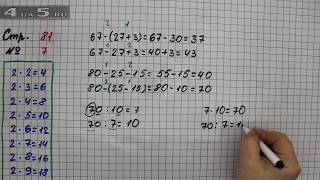 4APOK.RU
Стр. 81
№ 7
2·2=4
2·3=6
2·4=8
2·5=10
2·6=12
2·7=14
2·8=16
2·9=18
2 1
67-(27+3)=67-30=37
1 2
67-27+3=40+3=43
1 2
80-25-15=55-15=40
2 1
80-(25-15)=80-10=70
70:10=7
70:7=10
7·10=70
70:7=1